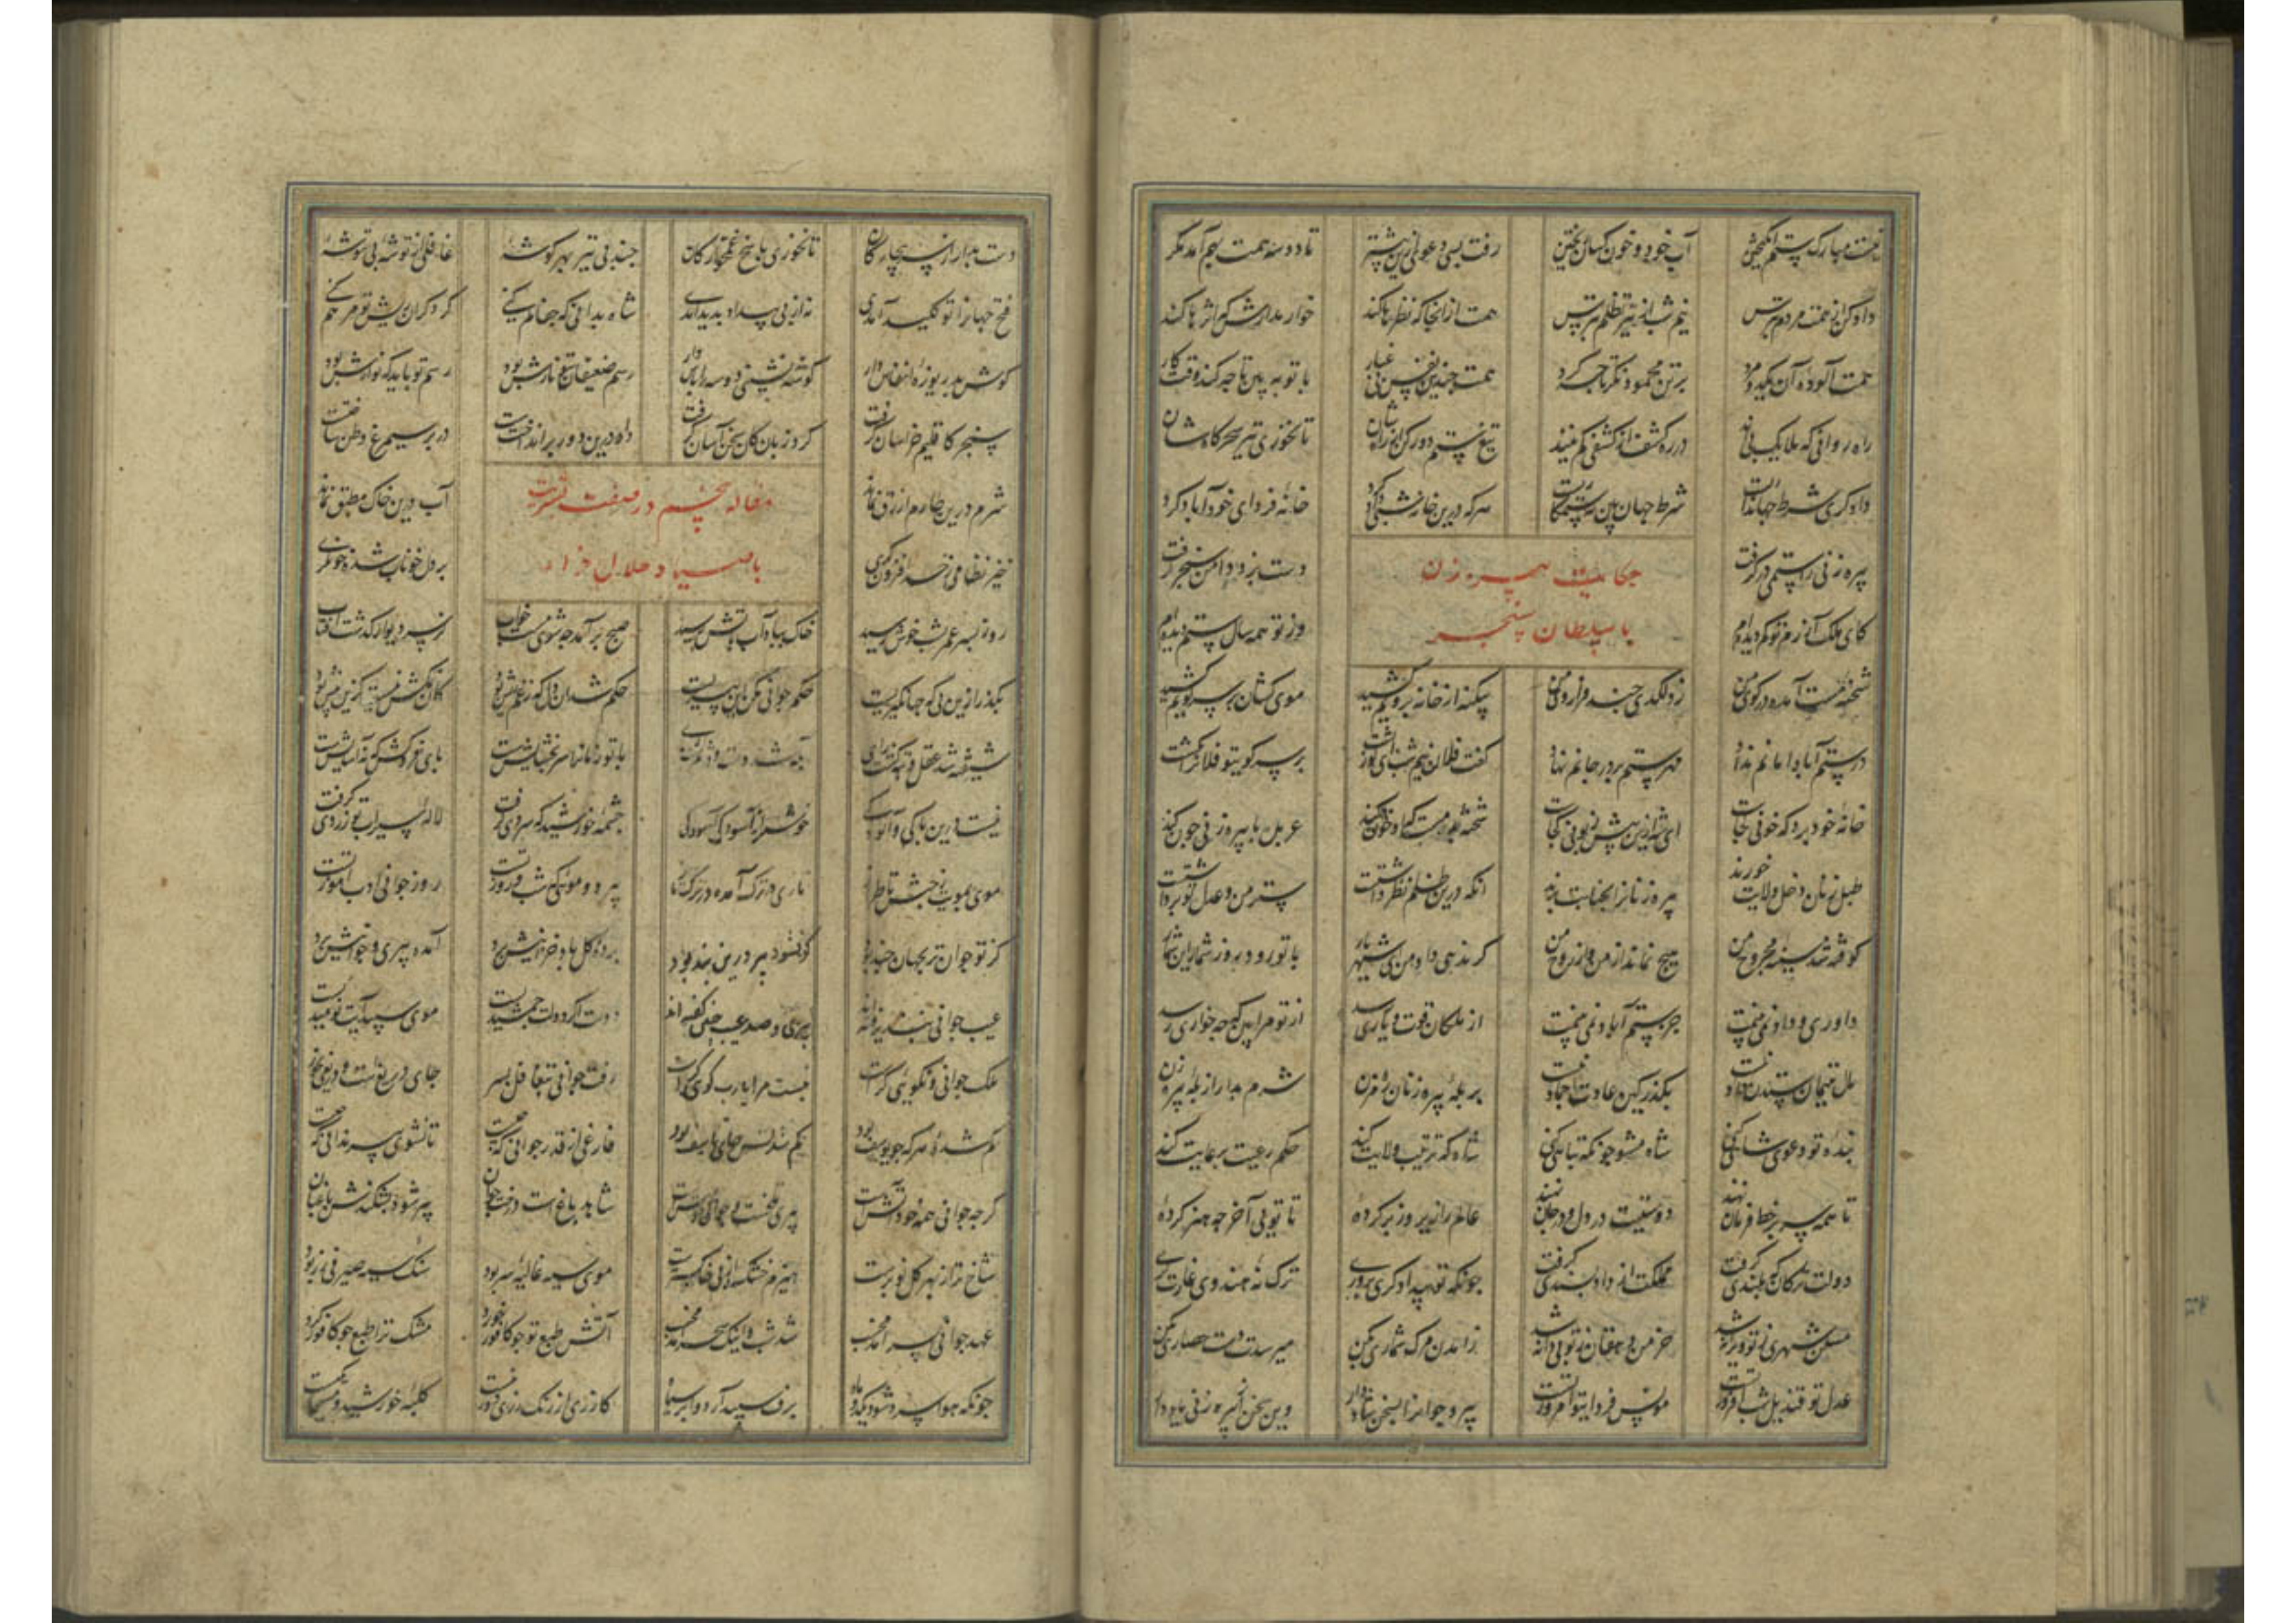 نیست مبارک ستم انگیختن آب خود و خون کسان ریختن رفت بسی دعوی ازین پیشتر تا دو سه همت بهم آید مگر
داد کن از همت مردم بترس نیم شب از تیر تظلم بترس همت از آنجا که نظرها کند خوار مدارش که اثرها کند
همت آلوده آن یک دو مرد بر تن محمود نگر تا چه کرد همت چندین نفس بی غبار با تو ببین تا چه کند وقت کار
راه روانی که ملایک پی اند در ره کشف از کشفی کم نیند تیغ ستم دور کن از راه شان تا نخوری تیر سحرگاه شان
دادگری شرط جهانداریست شرط جهان بین که ستمگاریست هر که درین خانه شبی داد کرد خانه فردای خود آباد کرد
حکایت پیره زن
با سلطان سنجر
پیره زنی را ستمی درگرفت دست زد و دامن سنجر گرفت
کای ملک آزرم تو کم دیده ام وز تو همه سال ستم دیده ام
شحنه مست آمده در کوی من زد لگدی چند فرا روی من بیگنه از خانه برویم کشید موی کشان بر سر کویم کشید
در ستم آباد نهاد مهر ستم بر در خانم نهاد گفت فلان نیم شب ای کوژپشت بر سر کوی تو فلانرا که کشت
خانه خود برد که خونی کجاست ای شه ازین بیش زبونی کجاست شحنه بود مست که او خون کند عربده با پیره زنی چون کند
طبل زنان دخل ولایت خورند پیره زنانرا بجنایت برند آنکه درین ظلم نظر داشتست ستر من و عدل تو برداشتست
کوفته شد سینه مجروح من هیچ نماند از من و از روح من گر ندهی داد من ای شهریار با تو رود روز شمار این شمار
داوری و داد نمی بینمت جز ستم آباد نمی بینمت از ملکان قوت و یاری رسد از تو مرا بین که چه خواری رسد
مال یتیمان ستدن نیست بگذر کین عادت نیست بر پله پیره زنان ره مزن شرم بدار از پله پیره زن
بنده تو دعوی شاهی کنی شاه مشو چونکه تباهی کنی شاه که ترتیب ولایت کند حکم رعیت برعایت کند
تا همه سر بر خط فرمان نهند دوستیت در دل و در جان نهند عالم را زیر و زبر کرده تا تویی آخر چه هنر کرده
دولت ترکان که بلندی گرفت مملکت از داد پسندی گرفت چونکه تو بیدادگری پروری ترک نه هندوی غارت گری
مسکن شهری ز تو ویرانه شد خرمن دهقان ز تو بی دانه شد زآمدن مرگ شماری بکن میرسدت دست حصاری بکن
عدل تو قندیل شب افروز تست مونس فردای تو امروز تست پیر و جوانرا بسخن شاد دار وین سخن از پیره زنی یاد دار
دست بدار از سر بیچارگان تا نخوری پاسخ غمخوارگان چند زنی تیر بهر گوشه غافلی از توشه بی توشه
فتح جهانرا تو کلید آمدی نه از پی بیداد پدید آمدی شاه بدانی که جفا کم کنی گر دگران ریش تو مرهم کنی
گوش بدریوزه انفاس دار گوشه نشینی دو سه را پاس دار رسم ضعیفان بتو نازش بود رسم تو باید که نوازش بود
سنجر که اقلیم خراسان گرفت کرد زیان کین سخن آسان گرفت داد درین دور برانداختست در بر سیمرغ وطن ساختست
شرم درین طارم ازرق نماند آب درین خاک مطبق نماند
مقاله پنجم در صفت
خیز نظامی ز حد افزون گری بر دل خوناب شده خون گری
روز بسر عمر شب خوش رسید خاک بباد آب بآتش رسید صبح برآمد چه شوی مست خواب کز سر دیوار گذشت آفتاب
بگذر ازین پی که جهانگیریست حکم جوانی مکن این پیریست
شیفته شد عقل و تبه گشت رای با تو زمانرا سر بخشایش است پای فروکش گه آسایش است
نیست درین پاکی و آلودگی خوشتر از آسودگی آسودگی چشمه خورشید که سردی گرفت لاله سیراب تو زردی گرفت
پیر دو مویی که شب و روز تست روز جوانی ادب آموز تست
کز تو جوان تر بجهان چند بود کو نشود پیر درین بند بود آمده پیری و جوانیش برد
عیب جوانی نپذیرفته اند پیری و صد عیب چنین گفته اند دولت اگر دولت جمشیدیست موی سپید آیت نومیدیست
ملک جوانی و نکویی کراست نیست مرا یارب گویی کراست رفت جوانی بتغافل بسر جای دریغست دریغی بخور
گم شده هر که چو یوسف بود گم شدنش جای تاسف بود فارغی از قدر جوانی که چیست تا نشوی پیر ندانی که چیست
گرچه جوانی همه خود آتش است پیری تلخ است و جوانی خوش است شاهد باغ است درخت جوان پیر شود بشکندش باغبان
شاخ تر از بهر گل نوبرست هیزم خشک از پی خاکسترست موی سیه غالیه سر بود سنگ سیه صیرفی زر بود
عهد جوانی بسر آمد مخسب شد شب و اینک سحر آمد مخسب آتش طبع تو چو کافور خورد مشک ترا طبع چو کافور کرد
چونکه هوا سرد شود یک دو ماه برف سپید آرد و ابر سیاه گازری از رنگ رزی دور نیست کلبه خورشید و مسیحا یکیست